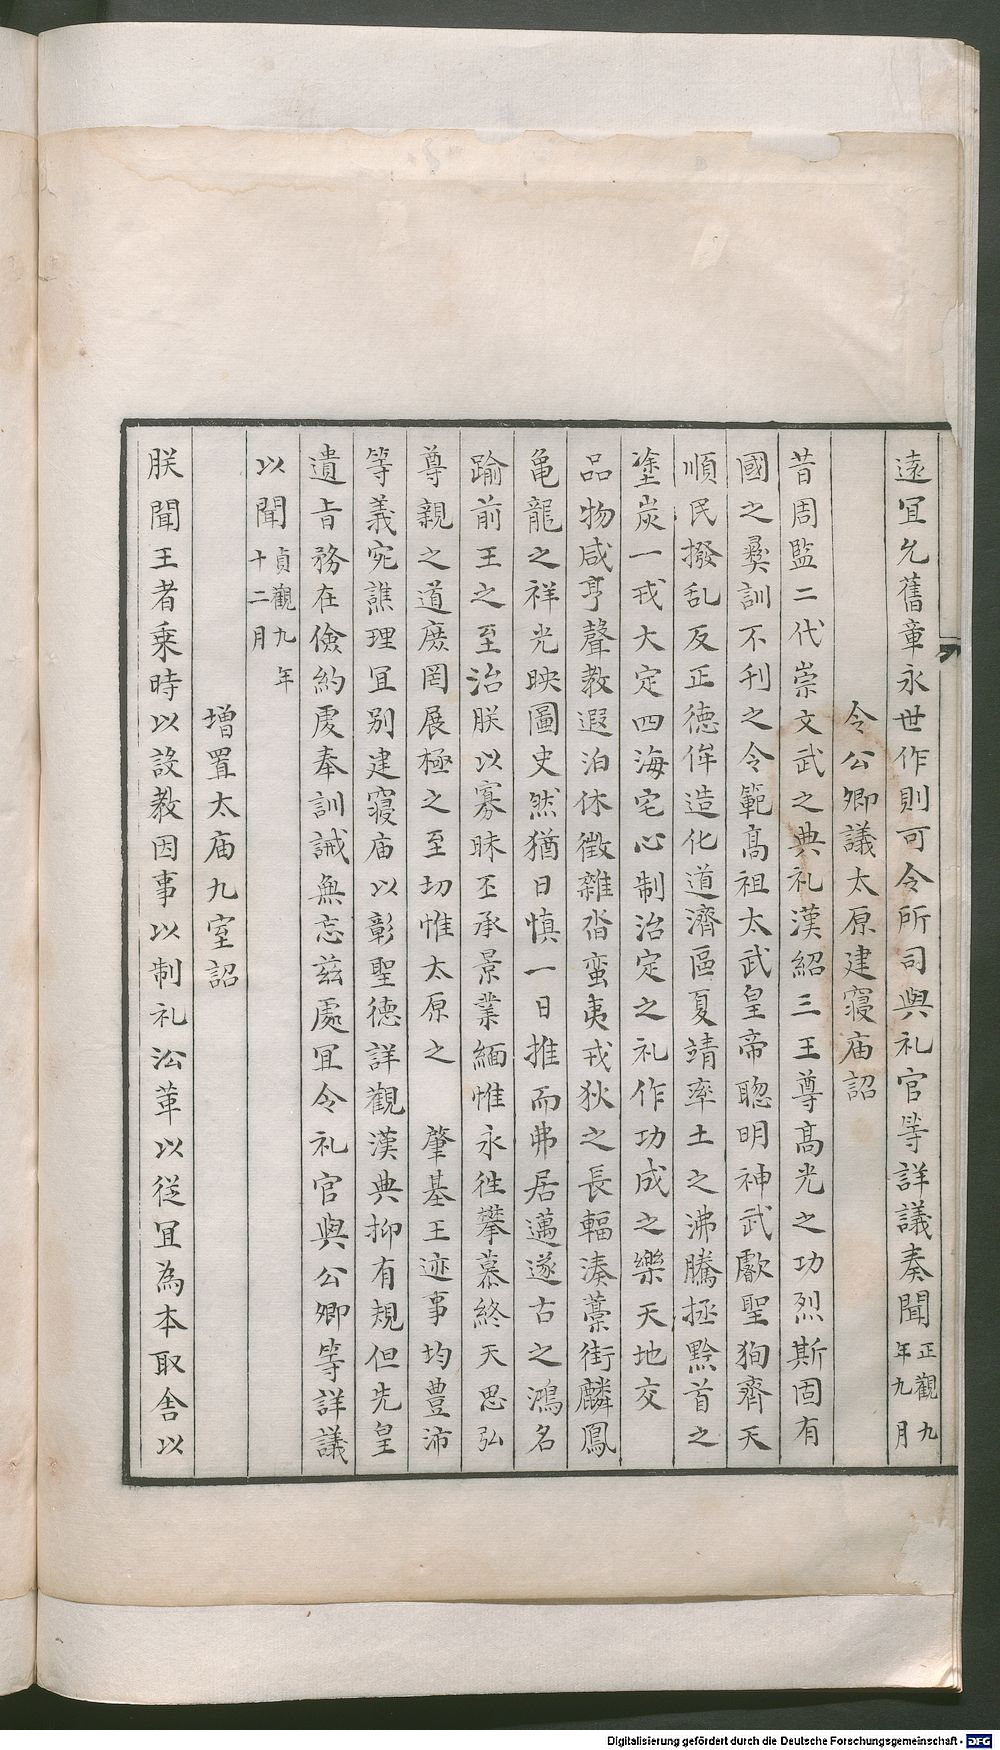 遠宜允舊章永世作則可令所司與礼官等詳議奏聞正觀九年九月
令公卿議太原建寢庙詔
昔周監二代崇文武之典礼漢紹三王尊高光之功烈斯固有
國之彛訓不刋之令範高祖太武皇帝聦明神武叡聖狥齊天
順民撥乱反正德侔造化道濟區夏靖率土之沸騰拯黔首之
塗炭一戎大定四海宅心制治定之礼作功成之樂天地交
品物咸亨聲教遐洎休徵雜沓蛮夷戎狄之長輻湊藁街麟鳳
亀龍之祥光映圖史然猶日慎一日推而弗居邁遂古之鴻名
踰前王之至治朕以寡昧丕承景業緬惟永徃攀慕終天思弘
尊親之道庶罔展極之至切惟太原之 肇基王迹事均豊沛
等義宛譙理宜别建寢庙以彰聖德詳觀漢典抑有規但先皇
遺旨務在儉約虔奉訓誡無忘兹處宜令礼官與公卿等詳議
以聞貞觀九年十二月
增置太庙九室詔
朕聞王者乗時以設教因事以制礼㳂革以從宜為本取舎以
Digitalisierung gefördert durch die Deutsche Forschungsgemeinschaft - DFG